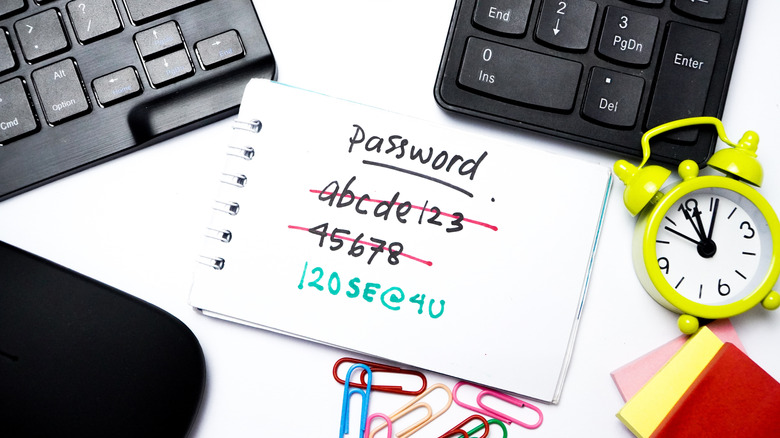 Alt
Option
Cmd
End
2
3
PgDn
0
Ins
.
Del
Enter
Password
abcde123
45678
120SE@4U
12
3
6
9